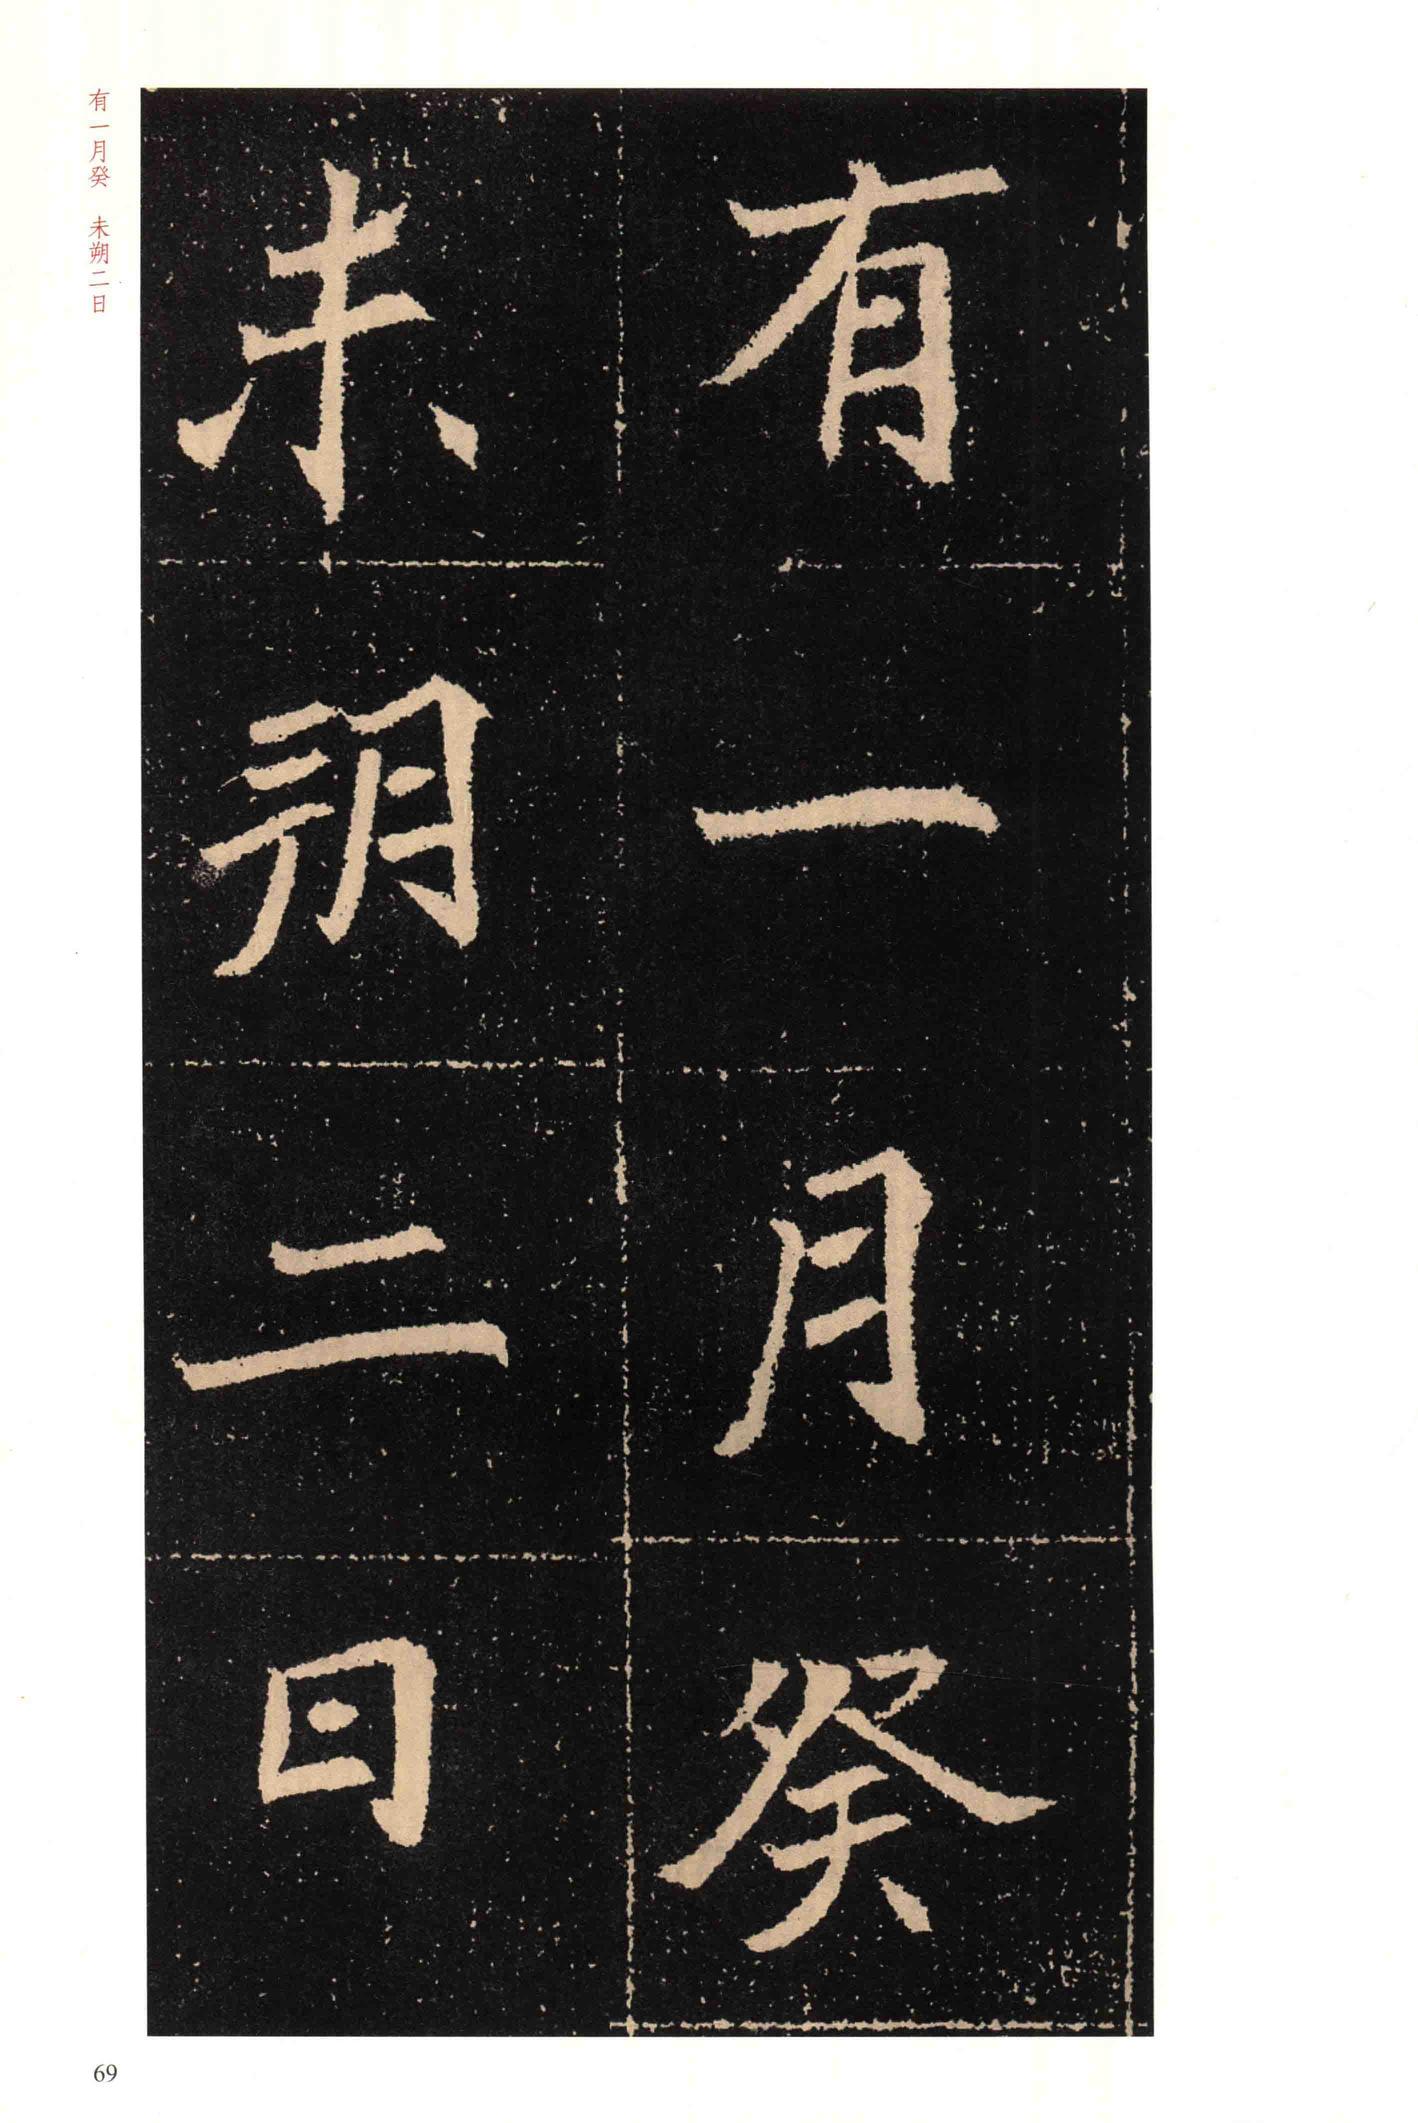 有一月癸
未朔二日
有一月癸　未朔二日
69